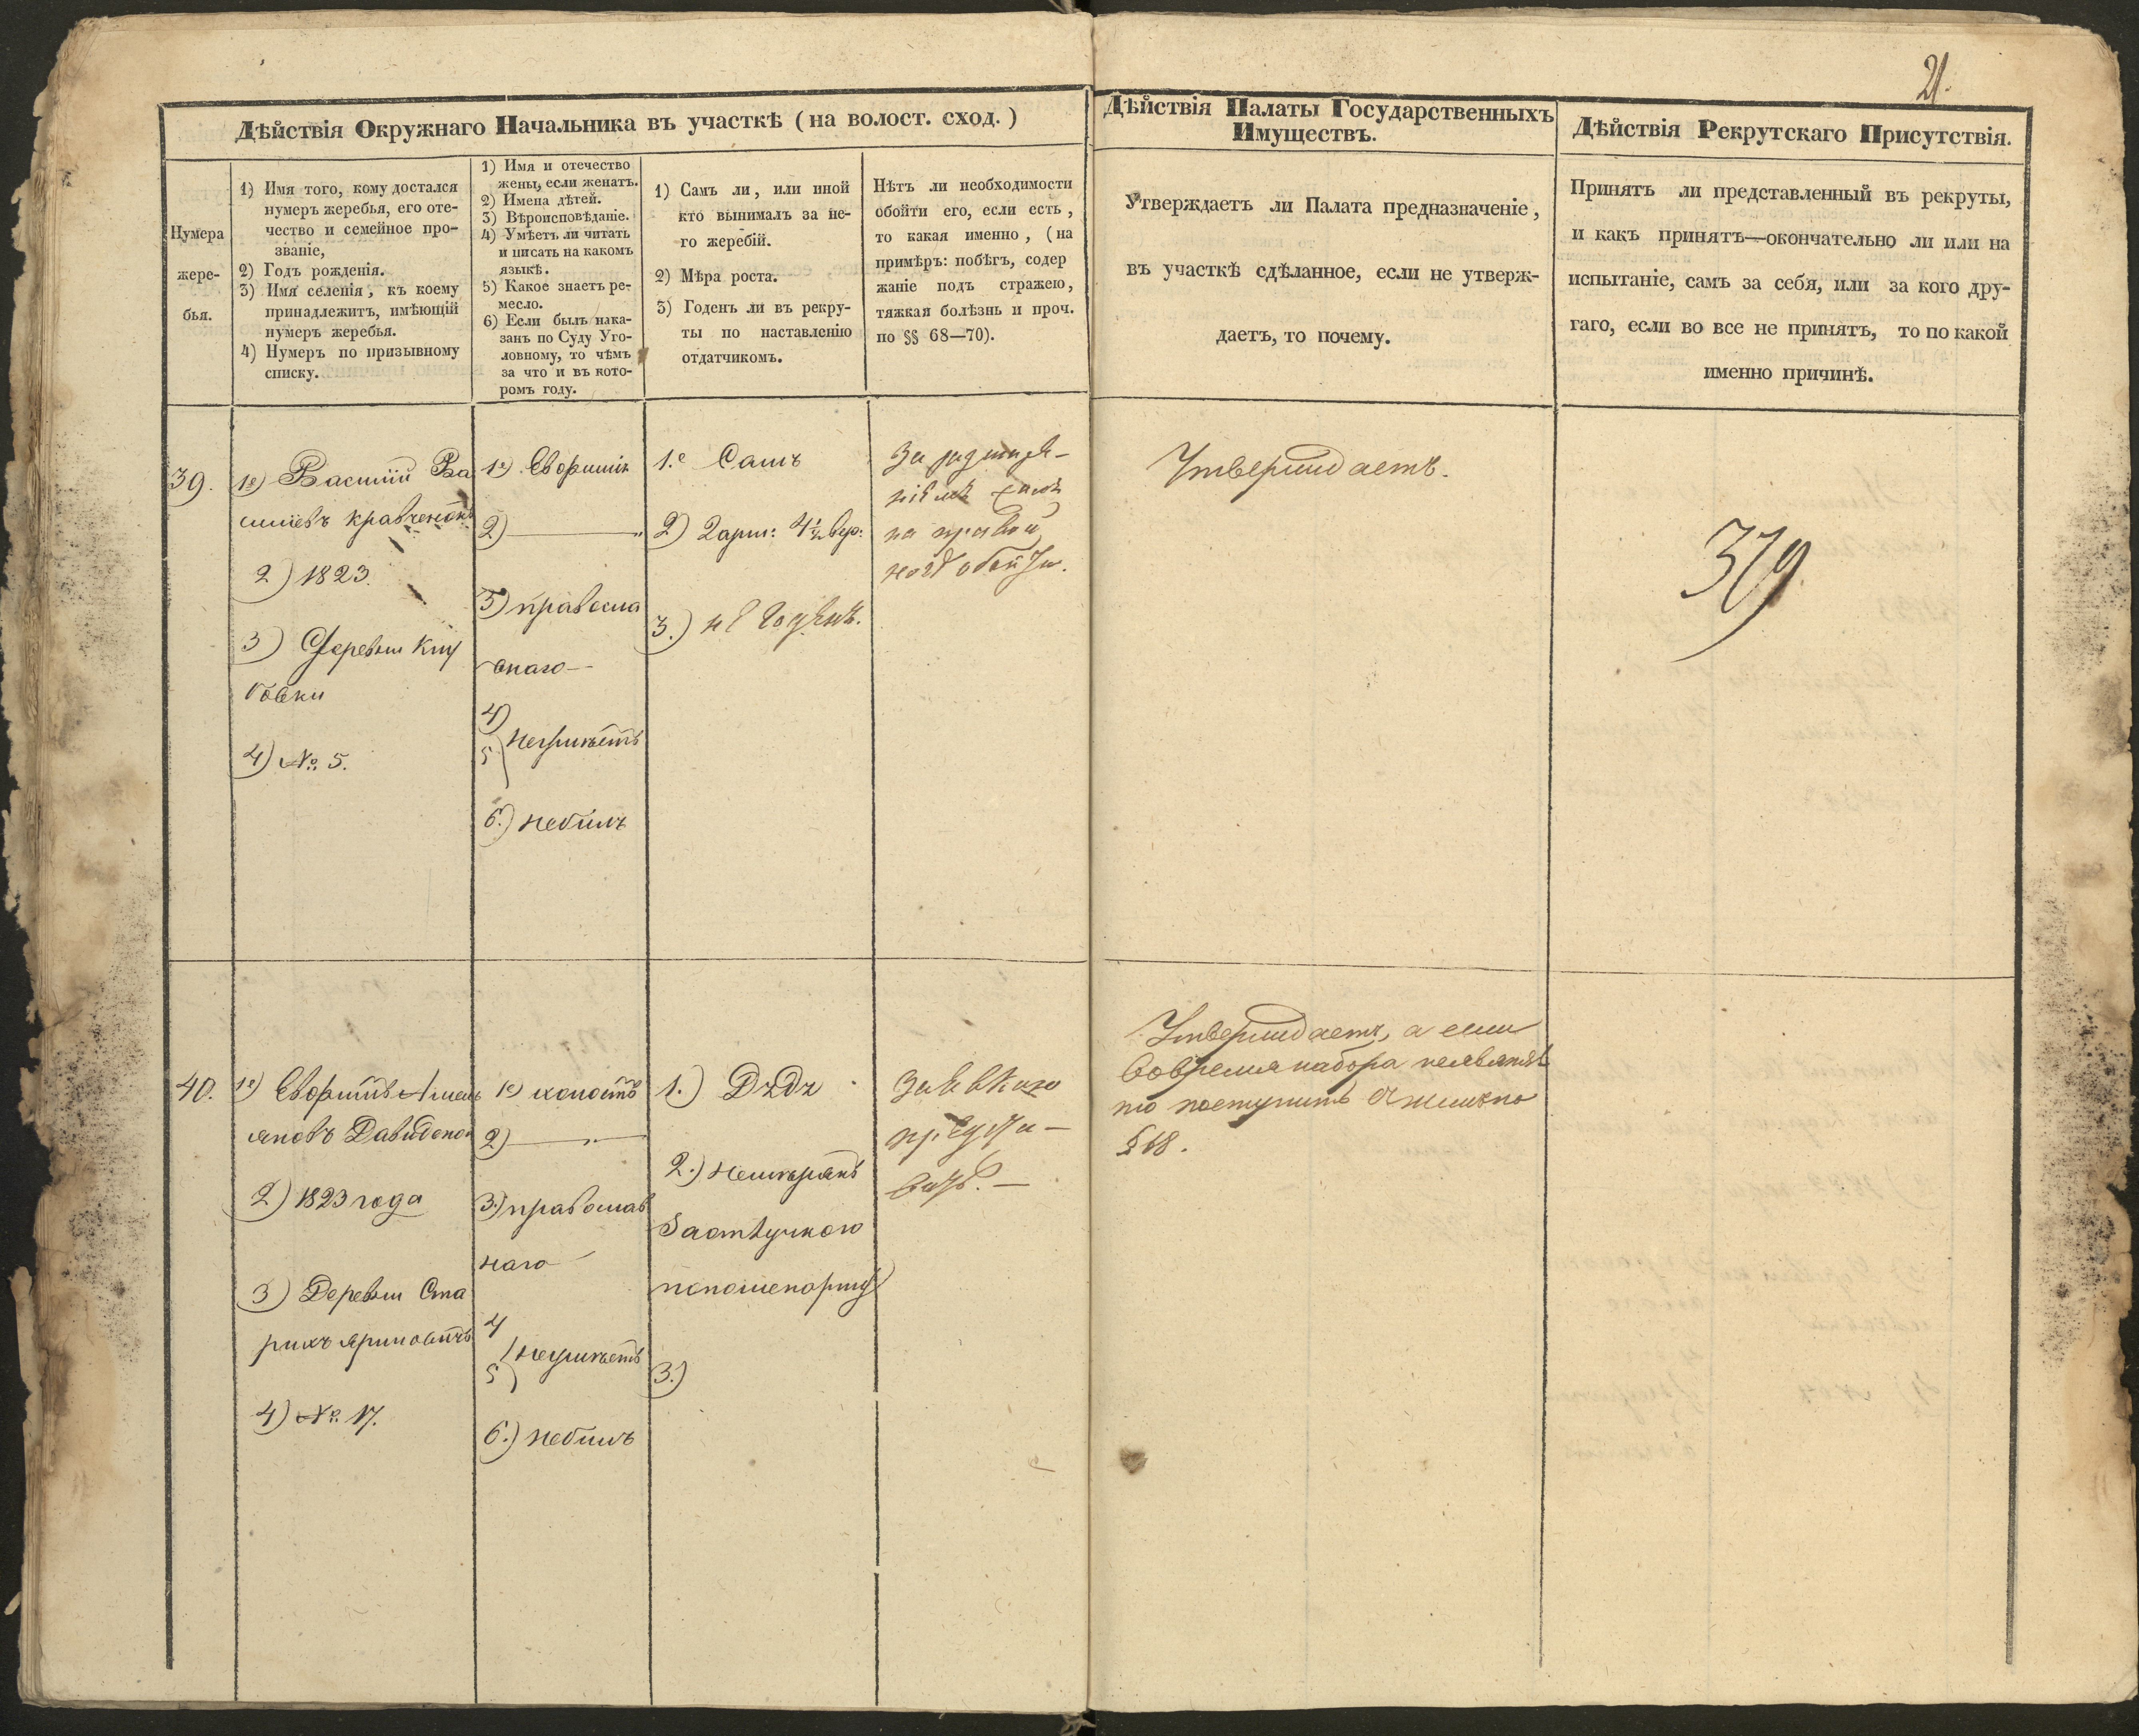 21.
Дѣйствія Окружнаго Начальника въ участкѣ (на волост. сход.)
Дѣйствія Палаты Государственныхъ
Имуществъ.
Дѣйствія Рекрутскаго Присутствія.
Нумера
жере-
бья.
1) Имя того, кому достался
нумеръ жеребья, его оте-
чество и семейное про-
званіе,
2) Годъ рожденія.
3) Имя селенія, къ коему
принадлежитъ, имѣющій
нумеръ жеребья.
4) Нумеръ по призывному
списку.
1) Имя и отечество
жены, если женатъ.
2) Имена дѣтей.
3) Вѣроисповѣданіе.
4) Умѣетъ ли читать
и писать на какомъ
языкѣ.
5) Какое знаетъ ре-
месло.
6) Если былъ нака-
занъ по Суду Уго-
ловному, то чѣмъ
за что и въ кото-
ромъ году.
1) Самъ ли, или иной
кто вынималъ за не-
го жеребій.
2) Мѣра роста.
3) Годенъ ли въ рекру-
ты по наставленію
отдатчикомъ.
Нѣтъ ли необходимости
обойти его, если есть,
то какая именно, (на
примѣръ: побѣгъ, содер
жаніе подъ стражею,
тяжкая болѣзнь и проч.
по §§ 68—70).
Утверждаетъ ли Палата предназначеніе,
въ участкѣ сдѣланное, если не утверж-
даетъ, то почему.
Принятъ ли представленный въ рекруты,
и какъ принятъ—окончательно ли или на
испытаніе, самъ за себя, или за кого дру-
гаго, если во все не принятъ, то по какой
именно причинѣ.
39.
1е) Василій Ва
силіевъ Кравченокъ
2) 1823.
3) Деревни
4) № 5.
1е)
2) — "
3) правосла
внаго —
4)
5) неумѣетъ
6.) небилъ
1.е Самъ
2) 2 арш: 4½ вер:
3.) не годенъ.
на правой
Утверждаетъ.
379.
40.
1е) Амель
яновъ
2) 1823 года
3) Деревни Ста
рихъ
4) № 17.
1е) холостъ
2) — " —
3.) православ
наго —
4
5) неумѣетъ
6.) небилъ
1.) Дѣдъ
2.) немѣрянъ
3.)
Утверждаетъ, а если
вовремя набора неявится
то поступить
§ 18.